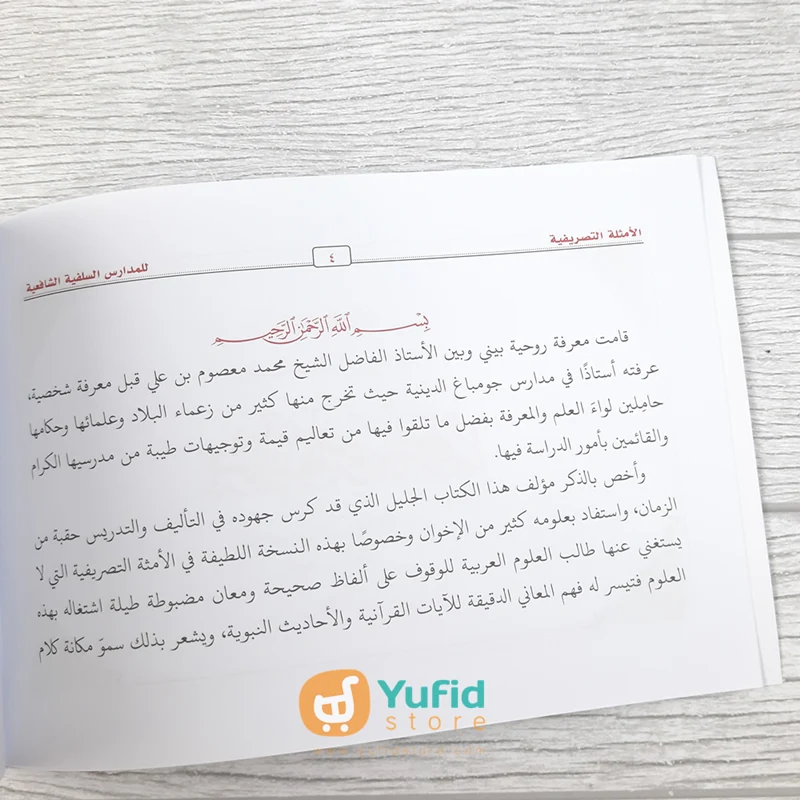 الأمثلة التصريفية
٤
للمدارس السلفية الشافعية
بِسْمِ ٱللَّهِ ٱلرَّحْمَٰنِ ٱلرَّحِيمِ
قامت معرفة روحية بيني وبين الأستاذ الفاضل الشيخ محمد معصوم بن علي قبل معرفة شخصية،
عرفته أستاذًا في مدارس جومباغ الدينية حيث تخرج منها كثير من زعماء البلاد وعلمائها وحكامها
حامِلين لواءَ العلم والمعرفة بفضل ما تلقوا فيها من تعاليم قيمة وتوجيهات طيبة من مدرسيها الكرام
والقائمين بأمور الدراسة فيها.
وأخص بالذكر مؤلف هذا الكتاب الجليل الذي قد كرس جهوده في التأليف والتدريس حقبة من
الزمان، واستفاد بعلومه كثير من الإخوان وخصوصًا بهذه النسخة اللطيفة في الأمثة التصريفية التي لا
يستغني عنها طالب العلوم العربية للوقوف على ألفاظ صحيحة ومعان مضبوطة طيلة اشتغاله بهذه
العلوم فتيسر له فهم المعاني الدقيقة للآيات القرآنية والأحاديث النبوية، ويشعر بذلك سموّ مكانة كلام
Yufid
store